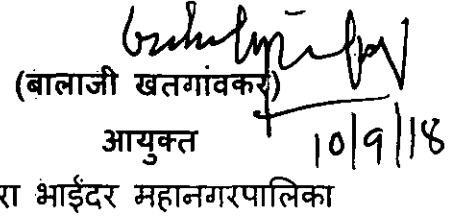 (बालाजी खतगांवकर)
आयुक्त
10/9/18
रा भाईंदर महानगरपालिका